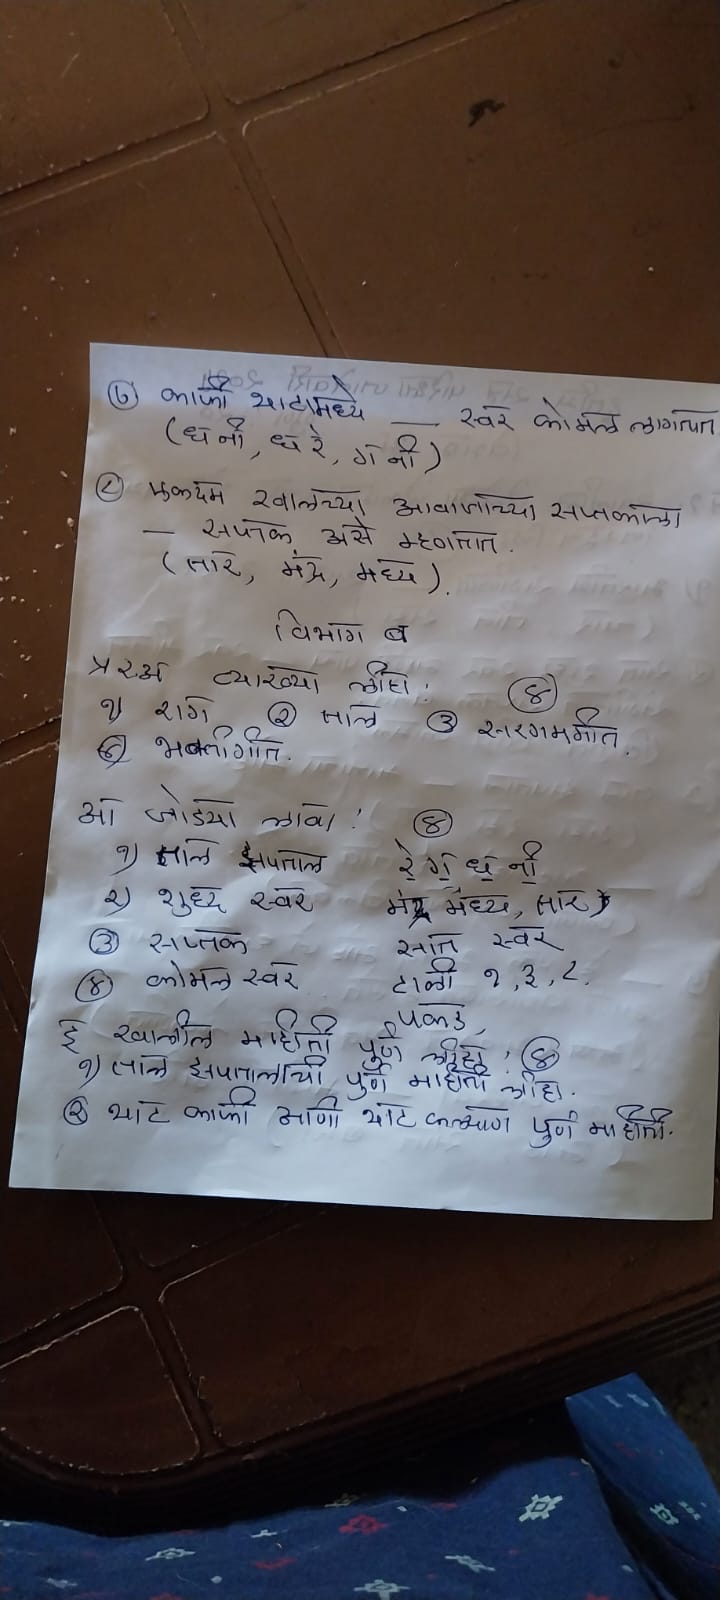 ७ काफी थाटामध्ये — स्वर कोमल लागतात
(ध नी, ध रे, ग नी)
८ एकदम खालच्या आवाजाच्या सप्तकाला
— सप्तक असे म्हणतात.
(तार, मंद्र, मध्य).
विभाग ब
प्र २अ व्याख्या लीहा: ४
१) राग २ ताल ३ सरगमगीत
४ भक्तीगीत.
आ जोड्या लावा: ४
१) ताल झपताल रे॒ ग॒ ध॒ नी॒
२) शुध्द स्वर मंद्र मध्य, तार
३ सप्तक सात स्वर
४ कोमल स्वर टाळी १, ३, ८.
पकड,
इ खालील माहीती पूर्ण लीहा: ४
१) ताल झपतालाची पूर्ण माहीती लीहा.
२ थाट काफी आणी थाट कल्याण पूर्ण माहीती.